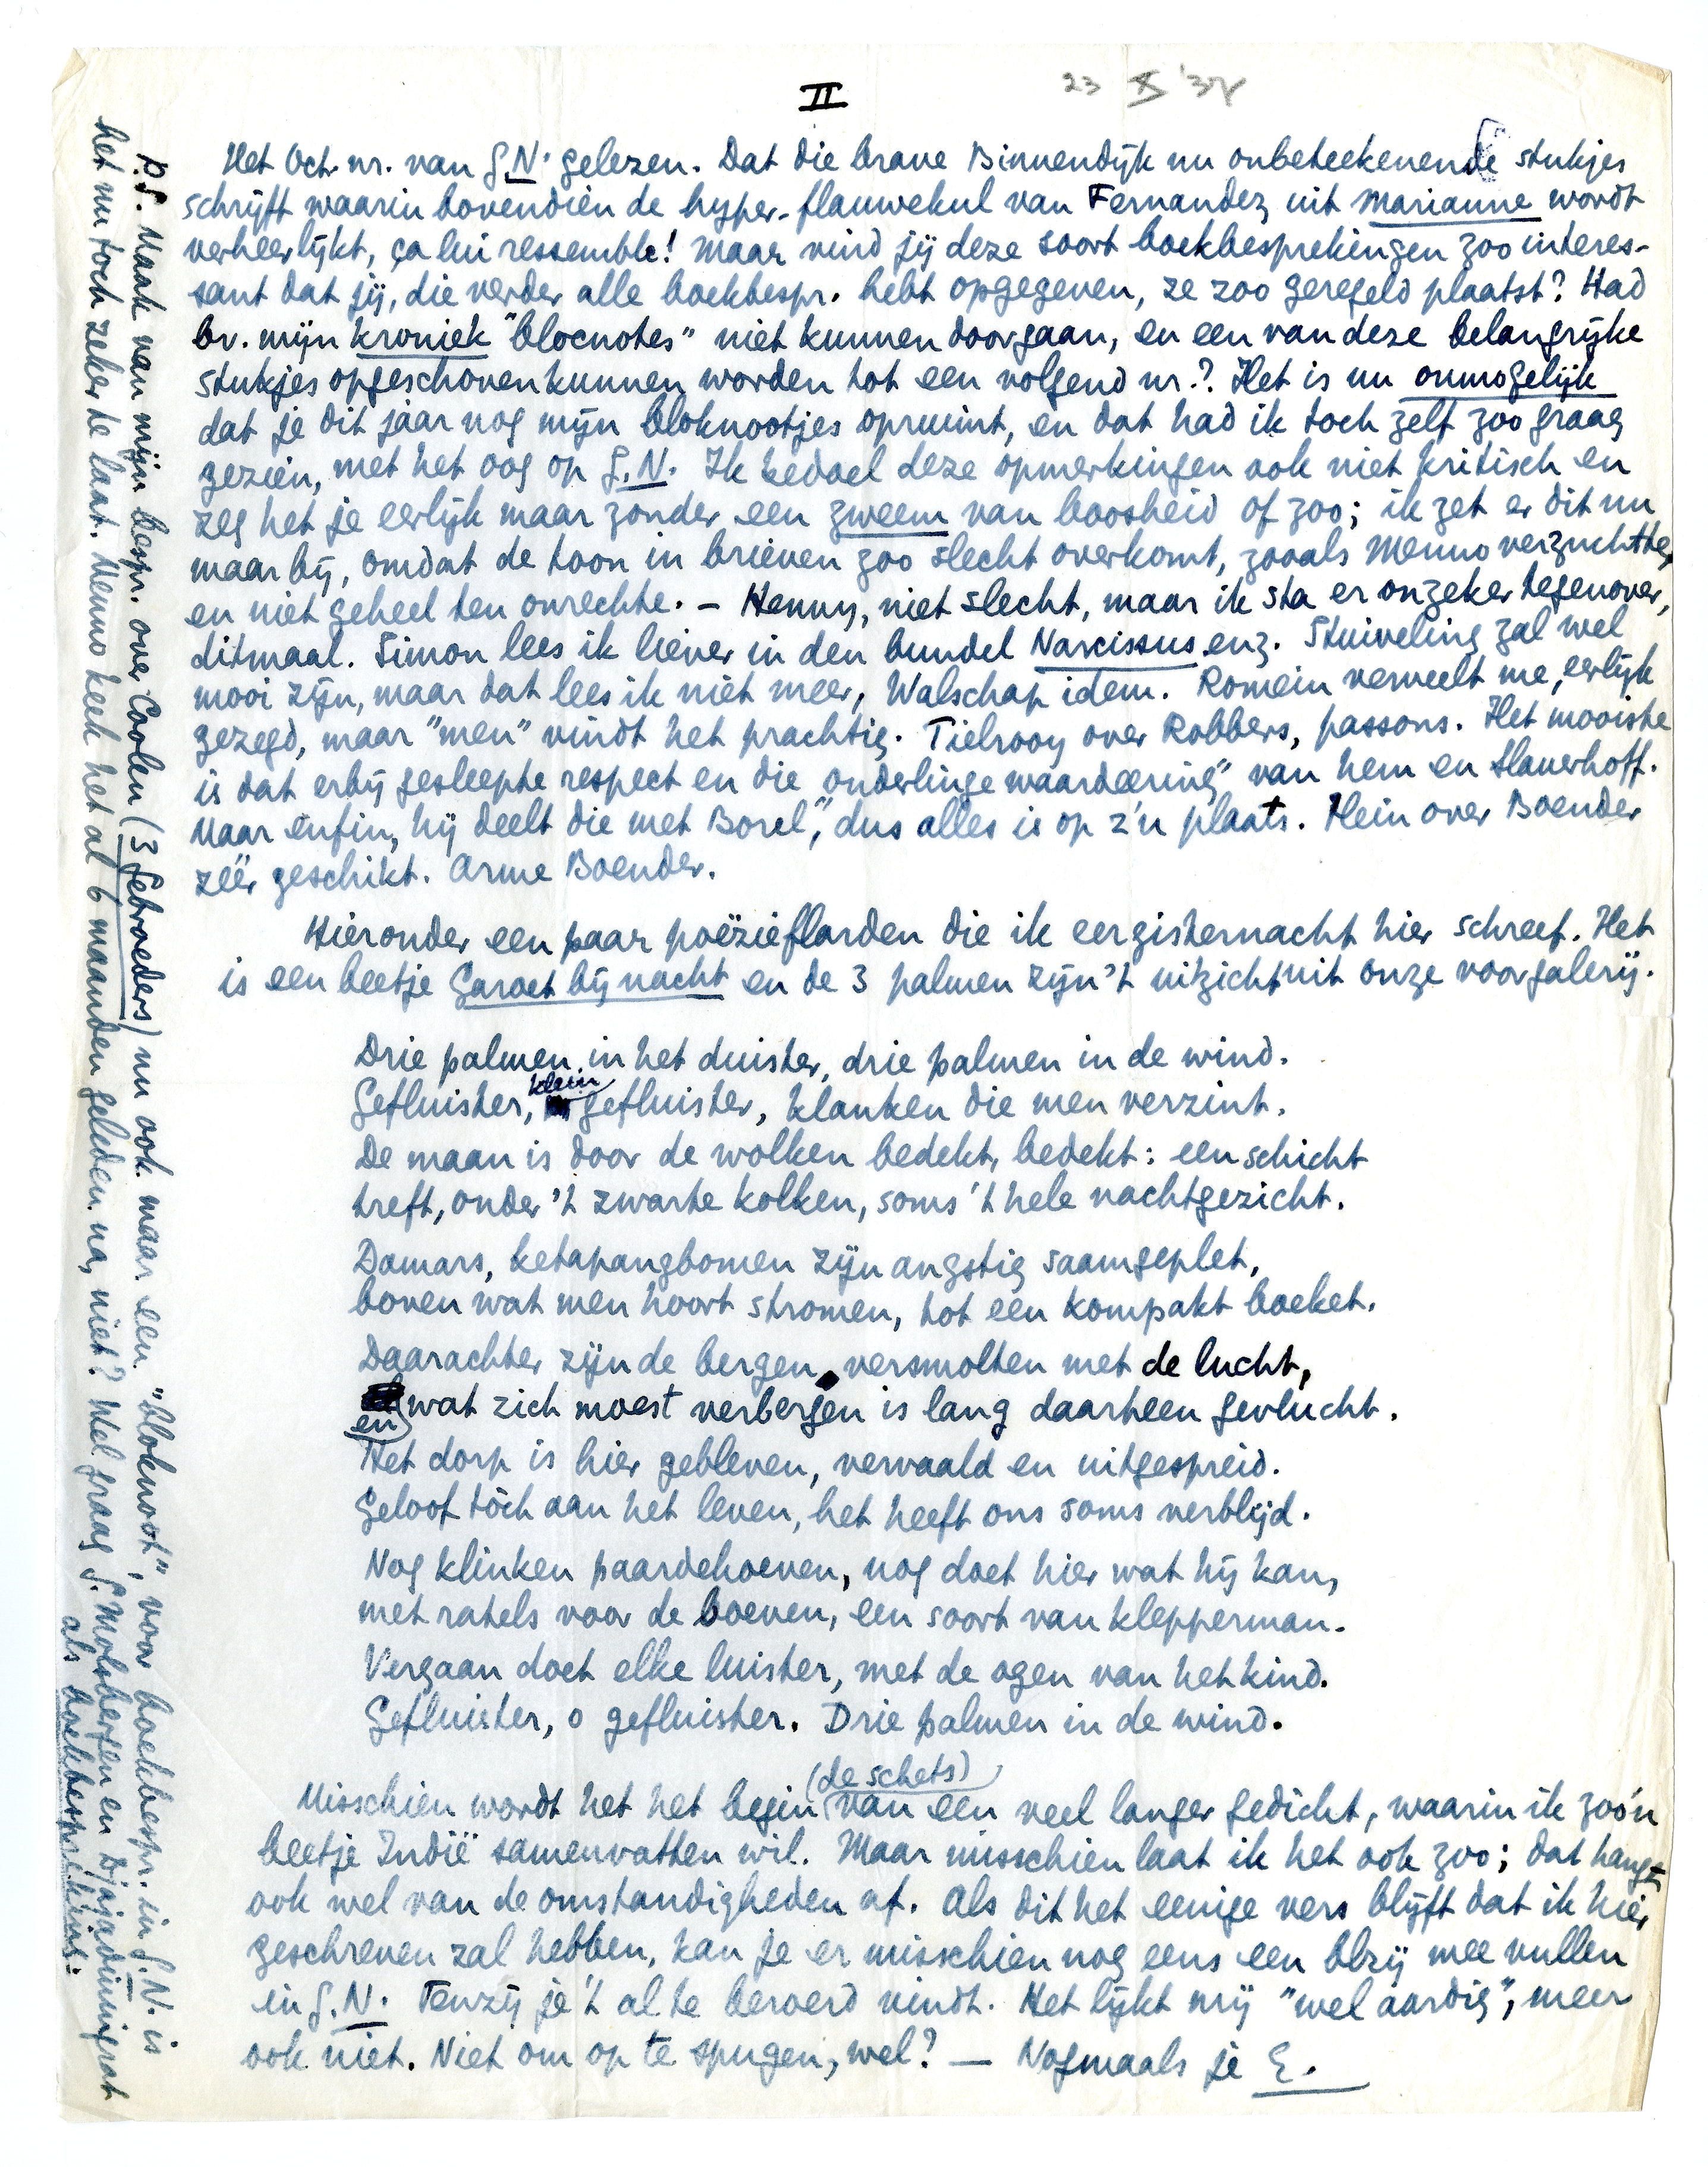 II
23 X '37
Het Oct. nr. van G.N. gelezen. Dat die brave Binnendijk nu onbeteekenende stukjes
schrijft waarin bovendien de hyper-flauwekul van Fernandez uit Marianne wordt
verheerlijkt, ça lui ressemble! Maar vind jij deze soort boekbesprekingen zoo interes-
sant dat jij, die verder alle boekbespr. hebt opgegeven, ze zoo geregeld plaatst? Had
bv. mijn kroniek "blocnotes" niet kunnen doorgaan, en een van deze belangrijke
stukjes opgeschoven kunnen worden tot een volgend nr.? Het is nu onmogelijk
dat je dit jaar nog mijn bloknootjes opruimt, en dat had ik toch zelf zoo graag
gezien, met het oog op G.N. Ik bedoel deze opmerkingen ook niet kritisch en
zeg het je eerlijk maar zonder een zweem van boosheid of zoo; ik zet er dit nu
maar bij, omdat de toon in brieven zoo slecht overkomt, zooals Menno verzuchtte,
en niet geheel ten onrechte. – Henny, niet slecht, maar ik sta er onzeker tegenover,
ditmaal. Simon lees ik liever in den bundel Narcissus enz. Stuiveling zal wel
mooi zijn, maar dat lees ik niet meer, Walschap idem. Romein verveelt me, eerlijk
gezegd, maar "men" vindt het prachtig. Tielrooy over Robbers, passons. Het mooiste
is dat erbij gesleepte respect en die "onderlinge waardeering" van hem en Slauerhoff.
Maar enfin, hij deelt die met "Borel", dus alles is op z'n plaats. Hein over Boender
zéér geschikt. Arme Boender.
Hieronder een paar poëzieflarden die ik eergisternacht hier schreef. Het
is een beetje Garoet bij nacht en de 3 palmen zijn 't uitzicht uit onze voorgalerij.
Drie palmen in het duister, drie palmen in de wind.
Gefluister, klein gefluister, klanken die men verzint.
De maan is door de wolken bedekt, bedekt: een schicht
treft, onder 't zwarte kolken, soms 't hele nachtgezicht.
Damars, ketapangbomen zijn angstig saamgeplet,
boven wat men hoort stromen, tot een kompakt boeket.
Daarachter zijn de bergen, versmolten met de lucht,
en wat zich moest verbergen is lang daarheen gevlucht.
Het dorp is hier gebleven, vervaald en uitgespreid.
Geloof tòch aan het leven, het heeft ons soms verblijd.
Nog klinken paardehoeven, nog doet hier wat hij kan,
met ratels voor de boeven, een soort van klepperman.
Vergaan doet elke luister, met de ogen van het kind.
Gefluister, o gefluister. Drie palmen in de wind.
Misschien wordt het het begin (de schets) van een veel langer gedicht, waarin ik zoo'n
beetje Indië samenvatten wil. Maar misschien laat ik het ook zoo; dat hangt
ook wel van de omstandigheden af. Als dit het eenige vers blijft dat ik hier
geschreven zal hebben, kan je er misschien nog eens een blzij mee vullen
in G.N. Tenzij je 't al te beroerd vindt. Het lijkt mij "wel aardig", meer
ook niet. Niet om op te spugen, wel? — Nogmaals je E.
P.S. Maak van mijn bespr. over Coolen (3 Gebroeders) nu ook maar een "bloknoot", voor boekbespr. in G.N. is
het nu toch zeker te laat. Menno keek het al 6 maanden geleden na, niet? Wel graag S. Molsbergen en Djajadiningrat
als boekbespreking.